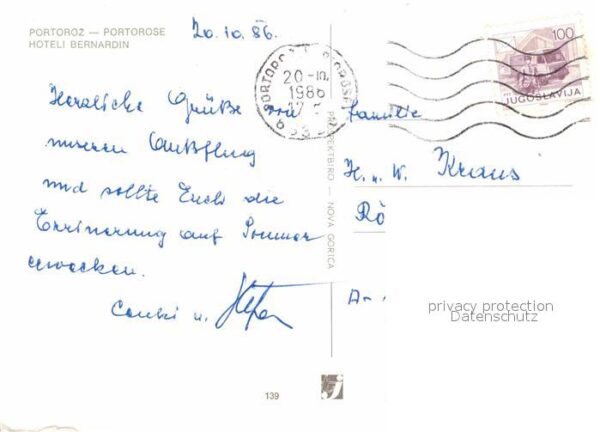 PORTOROŽ — PORTOROSE
HOTELI BERNARDIN
20.10.86.
Herzliche Grüße von
unserem Ausflug
und sollte Euch die
Errinerung auf Sommer
erwecken.
u. Stefan
PORTOROŽ PORTOROSE
20-10.
1986
100
JUGOSLAVIJA
PROJEKTBIRO — NOVA GORICA
Familie
H. u. W. Kraus
Rö
A
privacy protection
Datenschutz
139